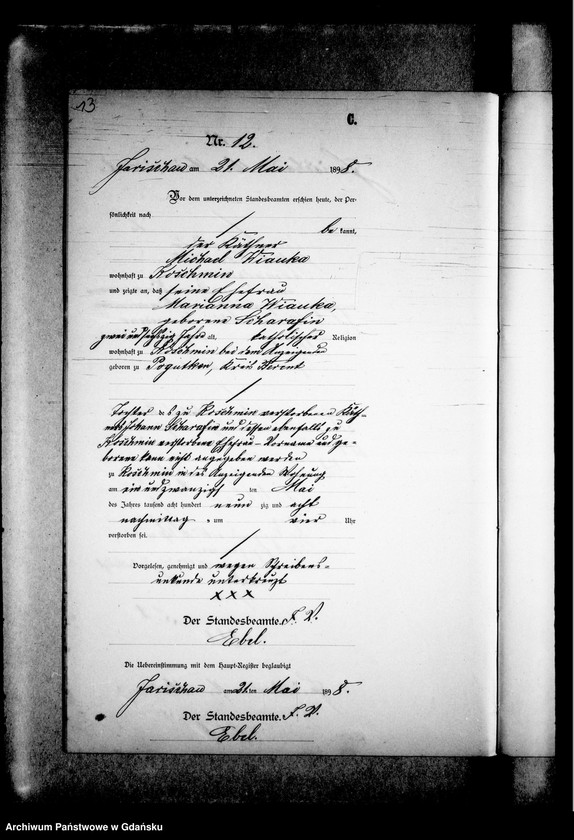 13
C.
Nr. 12.
Jarischau am 21. Mai 1898.
Vor dem unterzeichneten Standesbeamten erschien heute, der Per-
sönlichkeit nach
be kannt,
der Käthner
Michael Wiauka
wohnhaft zu Koschmin
und zeigte an, daß seine Ehefrau
Marianna Wiauka,
geborene Scharafin
zwei und sechzig Jahre alt, katholischer Religion
wohnhaft zu Koschmin bei dem Anzeigenden
geboren zu Pogutken, Kreis Berent
Tochter des zu Koschmin verstorbenen Käth-
ners Johann Scharafin und dessen ebenfalls zu
Koschmin verstorbene Ehefrau - Vorname und ge-
borene kann nicht angegeben werden
zu Koschmin in des Anzeigenden Wohnung,
am ein und zwanzigsten Mai
des Jahres tausend acht hundert neun zig und acht
nachmittag s um vier Uhr
verstorben sei.
Vorgelesen, genehmigt und wegen Schreibens-
unkunde unterkreuzt
x x x
Der Standesbeamte. J. V.
Ebel.
Die Uebereinstimmung mit dem Haupt-Register beglaubigt
Jarischau am 21. ten Mai 1898.
Der Standesbeamte. J. V.
Ebel.
Archiwum Państwowe w Gdańsku